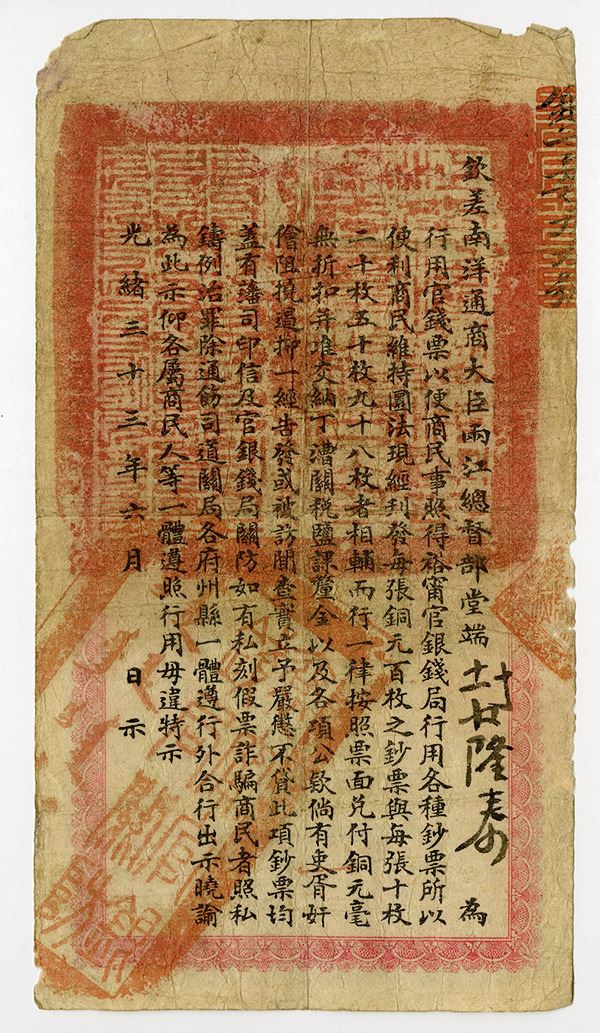 欽差南洋通商大臣兩江總督部堂端 為
行用官錢票以便商民事照得裕甯官銀錢局行用各種鈔票所以
便利商民維持圜法現經刊發每張銅元百枚之鈔票與每張十枚
二十枚五十枚九十八枚者相輔而行一律按照票面兌付銅元毫
無折扣并堆交納丁漕關稅鹽課釐金以及各項公欵倘有吏胥奸
儈阻撓遏抑一經告發或被訪聞查實立予嚴懲不貸此項鈔票均
蓋有藩司印信及官銀錢局關防如有私刻假票詐騙商民者照私
鑄例治罪除通飭司道關局各府州縣一體遵行外合行出示曉諭
為此示仰各屬商民人等一體遵照行用毋違特示
光緒三十三年六月 日示
隆壽